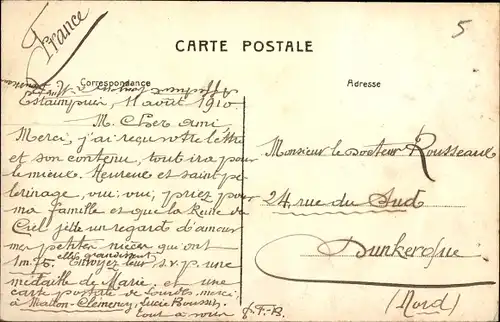 France
5
CARTE POSTALE
Correspondance
Adresse
Estaimpuis, 11 août 1910
M. Cher ami
Merci, j'ai reçu votre lettre
et son contenu, tout ira pour
le mieux. Heureux et saint pé-
lerinage, oui, oui, priez pour
ma famille et que la Reine du
Ciel jette un regard d'amour
mes petites nièces qui ont
elles grandissent
Envoyez leur s.v.p. une
médaille de Marie et une
carte postale de Lourdes, merci
à Clémency, Lucie
tout à vous J.-F.-B.
Monsieur le Docteur Rousseau
24 rue du Sud
Dunkerque
(Nord)